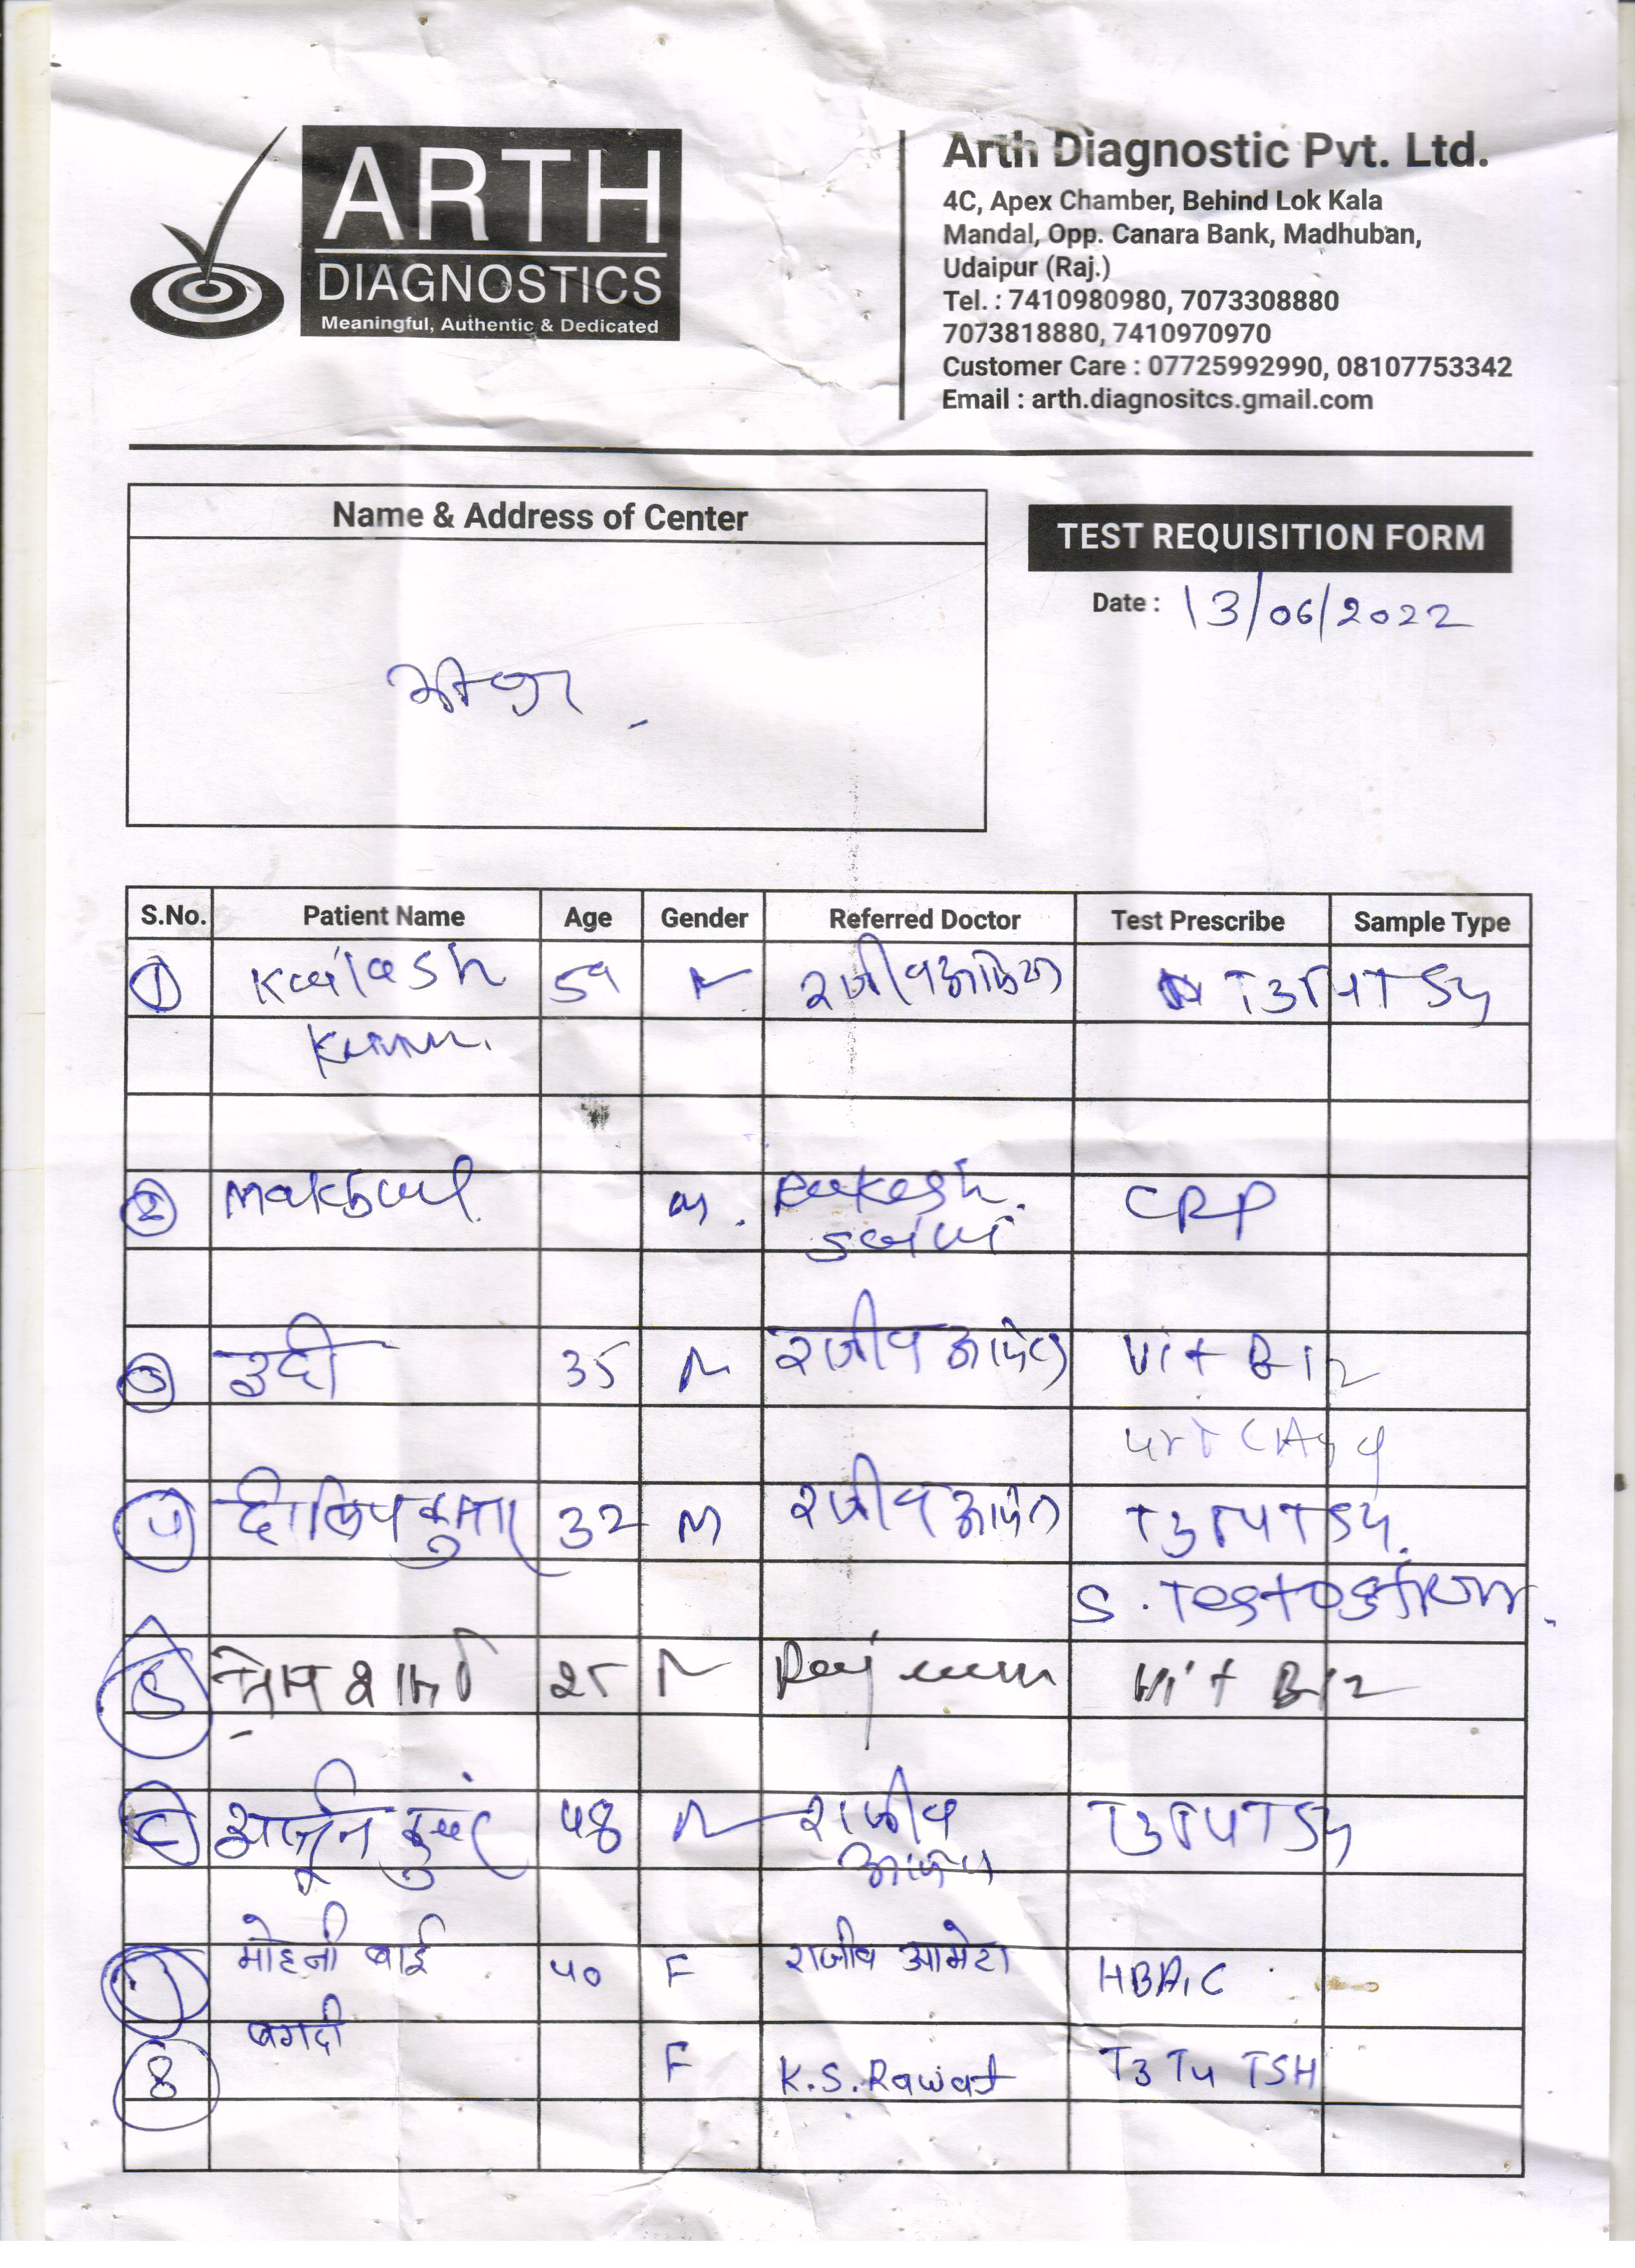 ARTH
DIAGNOSTICS
Meaningful, Authentic & Dedicated
Arth Diagnostic Pvt. Ltd.
4C, Apex Chamber, Behind Lok Kala
Mandal, Opp. Canara Bank, Madhuban,
Udaipur (Raj.)
Tel. : 7410980980, 7073308880
7073818880, 7410970970
Customer Care : 07725992990, 08107753342
Email : arth.diagnositcs.gmail.com
Name & Address of Center
TEST REQUISITION FORM
Date : 13/06/2022
S.No. Patient Name Age Gender Referred Doctor Test Prescribe Sample Type
1 Kailash 59 M राजीव T3T4TSH
2 Makbul M. Rakesh CRP
Saini
3 35 M राजीव आमेटा Vit B12
4 दीलिप कुमार 32 M राजीव आमेटा T3T4TSH.
S. Testostron.
5 25 M Vit B12
6 अर्जुन 48 M राजीव T3T4TSH
आमेटा
7 मोहनी बाई 40 F राजीव आमेटा HBA1C
बगदी
8 F K.S.Rawat T3 T4 TSH